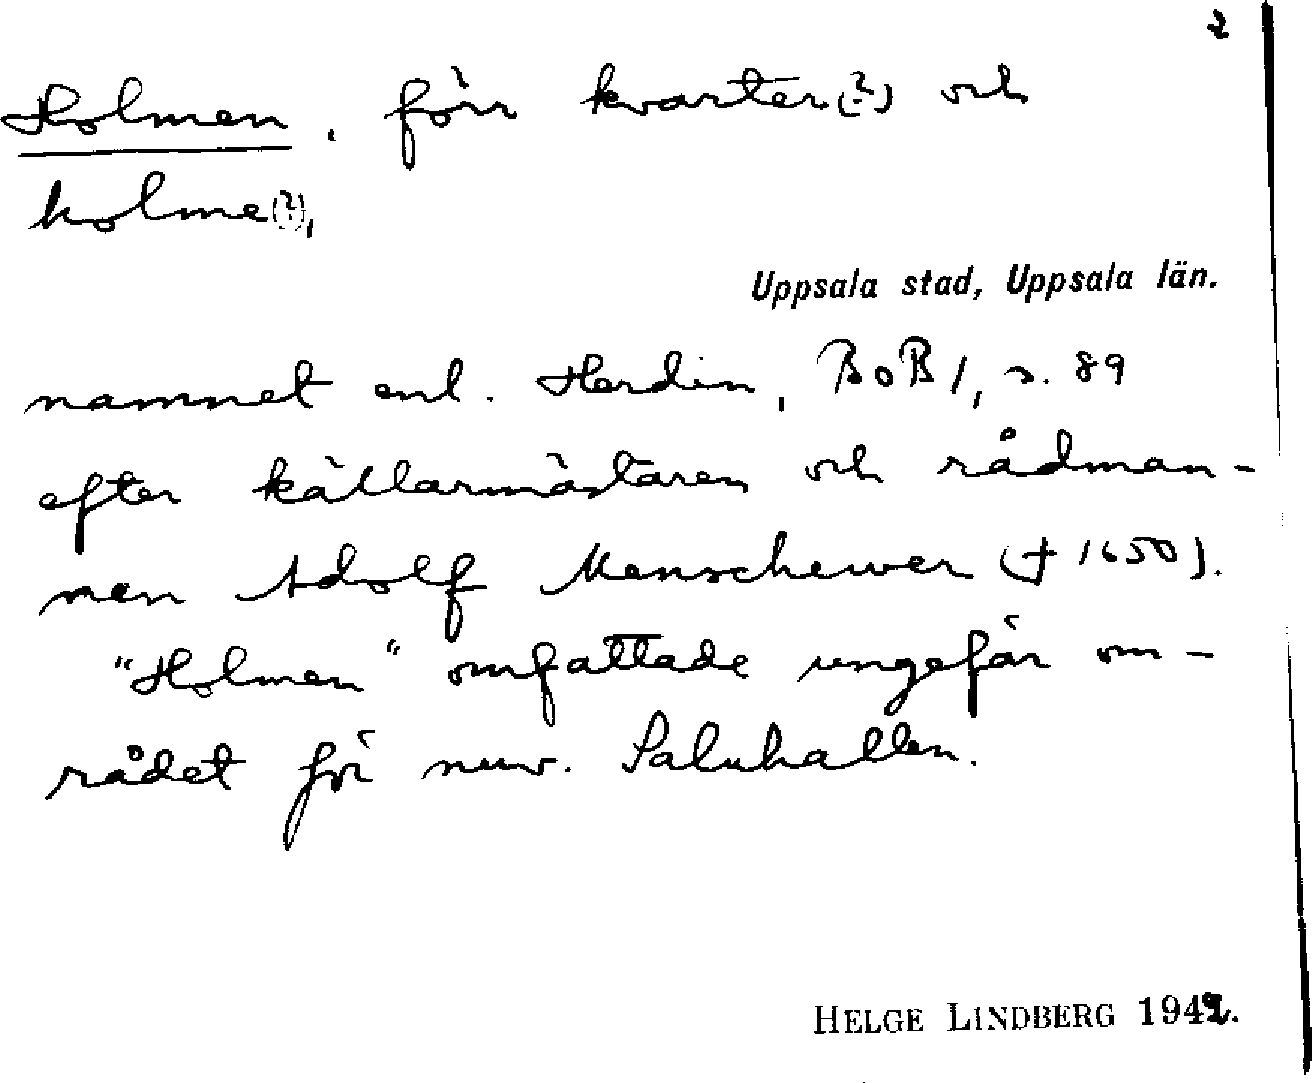 2
Holmen, förr kvarter(?) och
holme(?),
Uppsala stad, Uppsala län.
namnet enl. Herdin, BoB 1, s. 89
efter källarmästaren och rådman-
nen Adolf Menschewer († 1650).
"Holmen" omfattade ungefär om-
rådet för nuv. Saluhallen.
HELGE LINDBERG 1942.